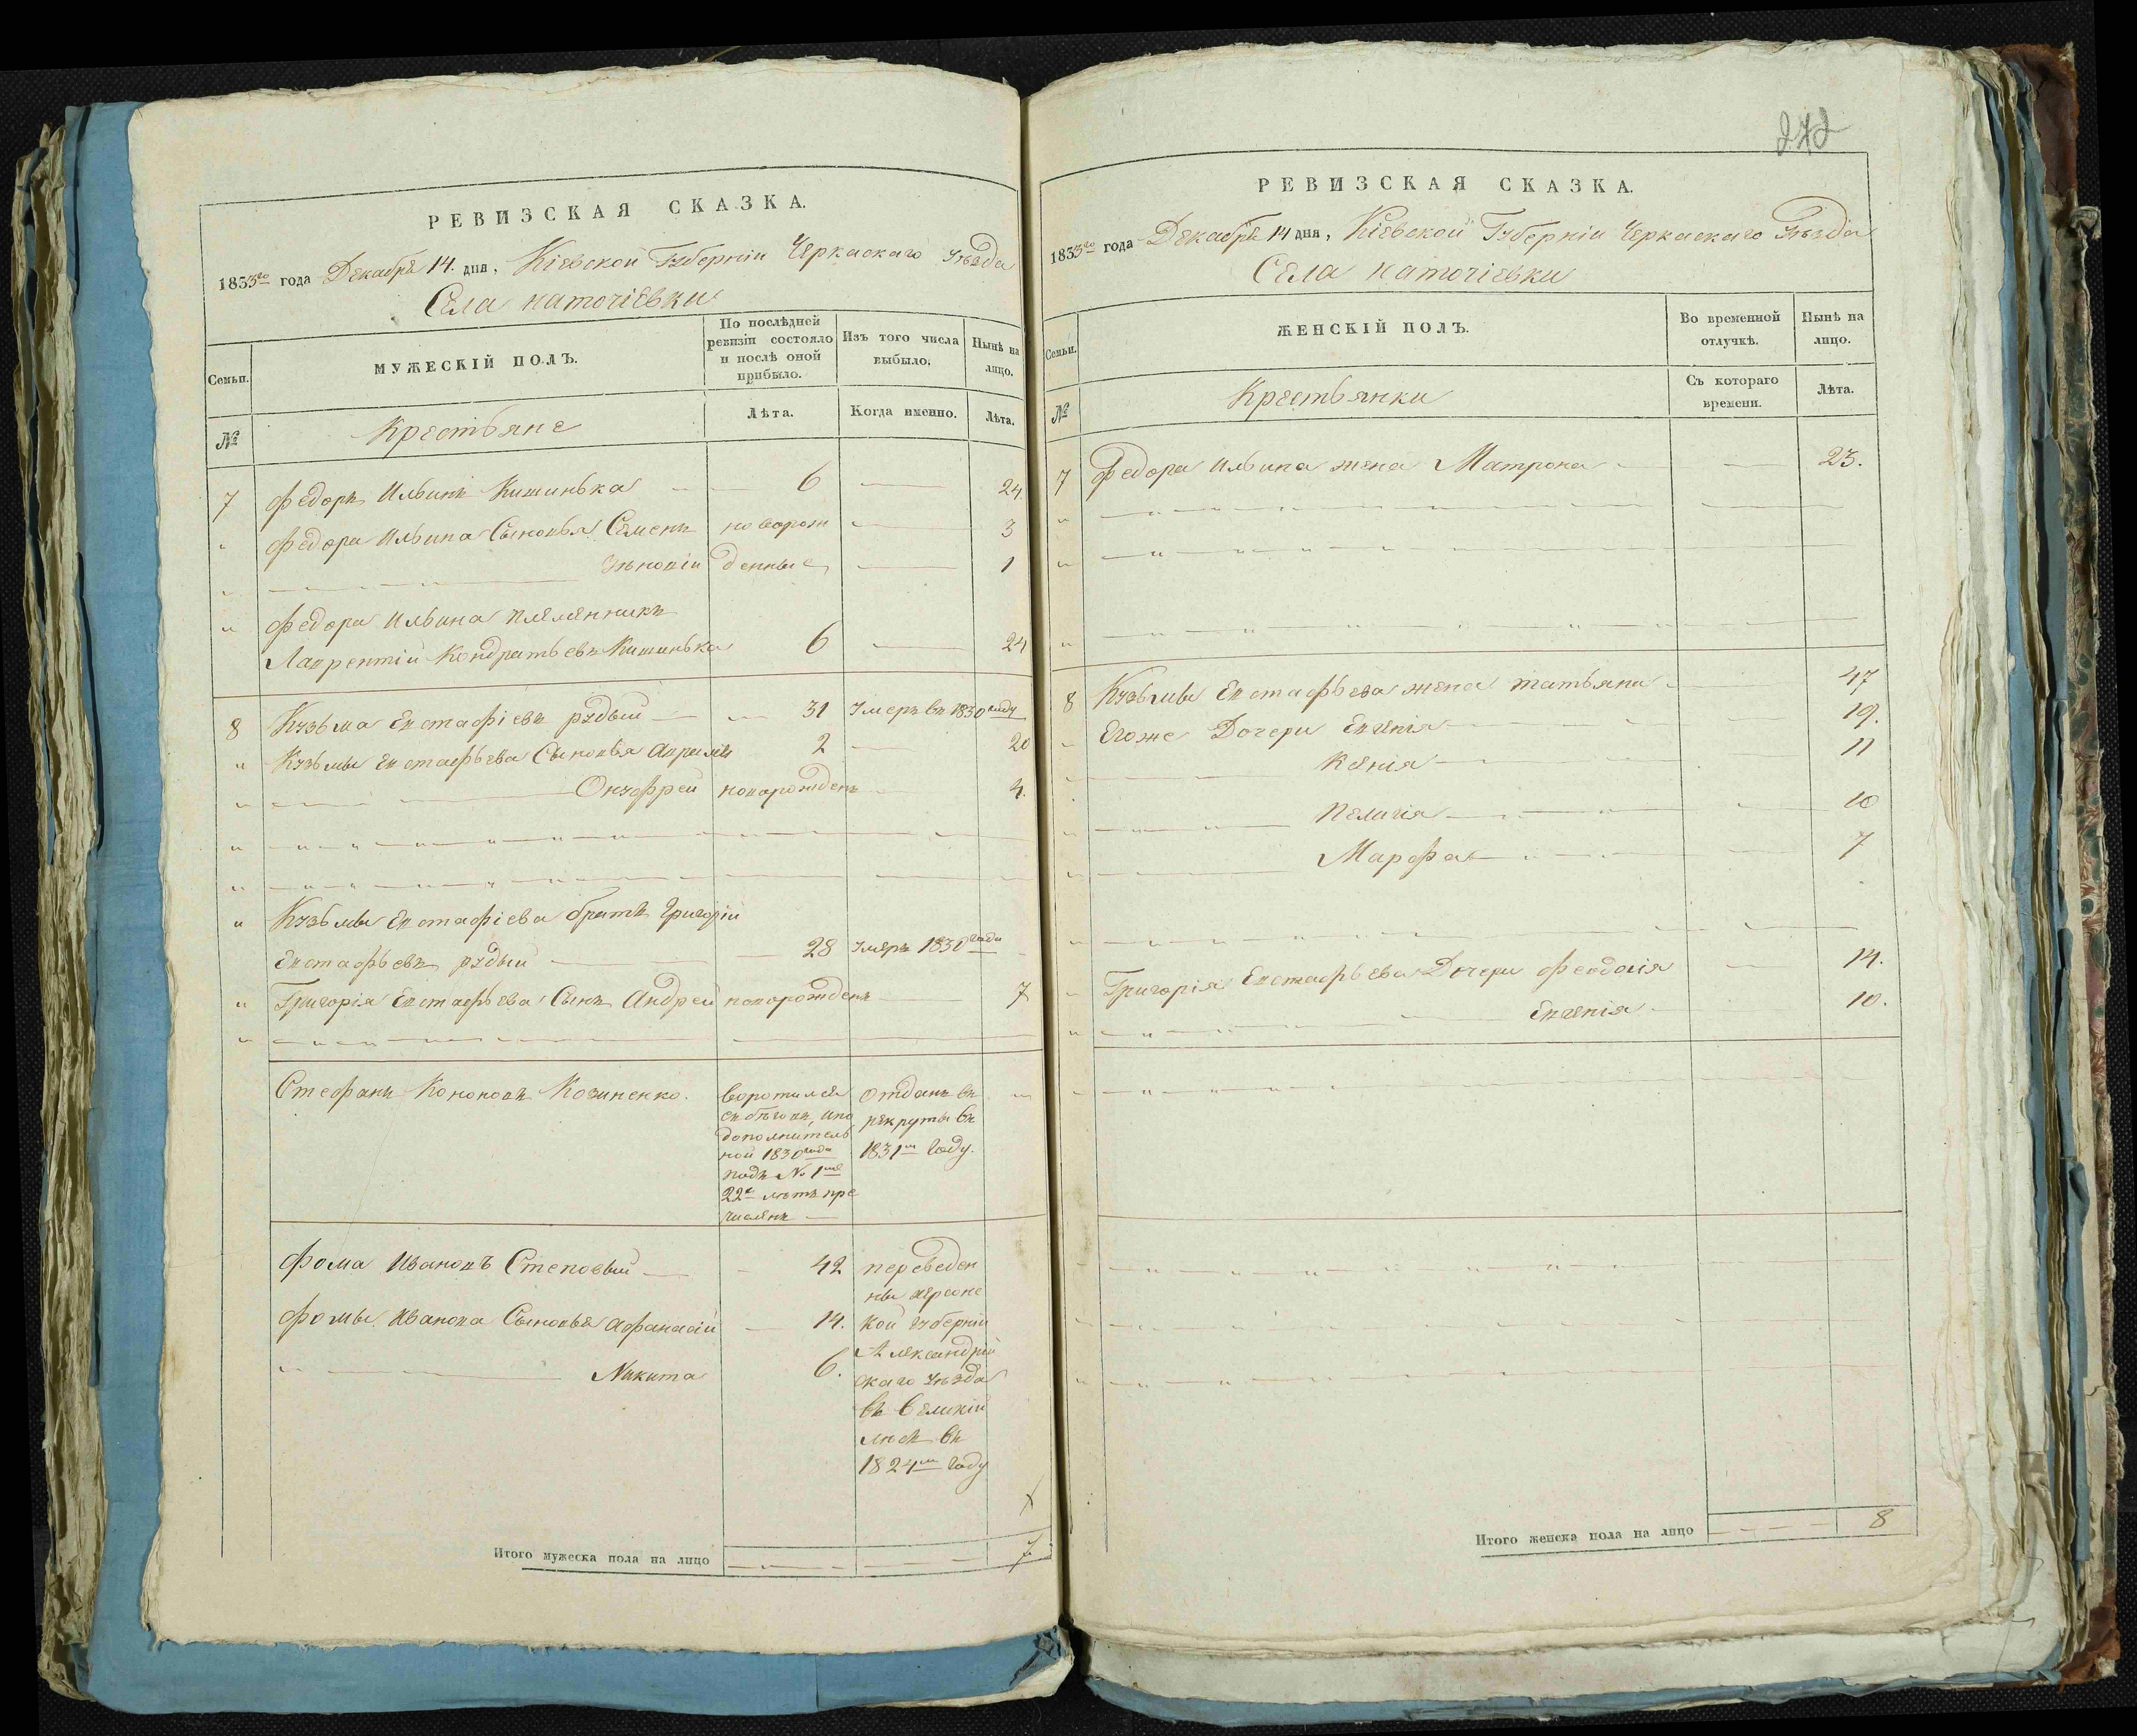 РЕВИЗСКАЯ СКАЗКА.
1833го года Декабря 14. дня, Кіевской Губерніи Черкаскаго Уѣзда
Села
Семьи.
МУЖЕСКІЙ ПОЛЪ.
По послѣдней
ревизіи состояло
и послѣ оной
прибыло.
Изъ того числа
выбыло.
Нынѣ на
лицо.
№
Крестьяне
Лѣта.
Когда именно.
Лѣта.
7 Федоръ Ильинъ Кишинька 6 24.
Федора Ильина Сыновья Семенъ новорож 3
Зѣновій денные 1
Федора Ильина племянникъ
Лаврентій Кондратьевъ Кишинька 6 24
8 Кузьма Евстафіевъ рудый 31 Умеръ въ 1830 году
Кузьмы Евстафьева Сыновья 2 20
Онуфрей новорожденъ 4.
Кузьмы Евстафіева братъ Григорій
Евстафьевъ рудый 28 умеръ 1830 года
Григорія Евстафьева Сынъ Андрей новорожденъ 7
Стефанъ Кононовъ Козиненко.
воротился
съ бѣговъ, и по
дополнитель
ной 1830 года
подъ № 1мъ
22 лѣтъ при
численъ
Отданъ въ
рекруты въ
1831м Году.
Фома Ивановъ Степовый 42
Фомы Иванова Сыновья Афанасій 14.
Никита 6.
переведен
ны херсонс
кой губерніи
Александрій
скаго уѣзда
въ
въ
1824м Году
Итого мужеска пола на лицо 7
272
РЕВИЗСКАЯ СКАЗКА.
1833го года Декабря 14 дня, Кіевской Губерніи Черкаскаго Уѣзда
Села
Семьи.
ЖЕНСКІЙ ПОЛЪ.
Во временной
отлучкѣ.
Нынѣ на
лицо.
№
Крестьянки
Съ котораго
времени.
Лѣта.
7 Федора Ильина жена Матрона 23.
8 Кузьмы Евстафьева жена татьяна 47
Егоже Дочери Евгенія 19.
Ксенія 11
Пелагія 10
Марфа 7
Григорія Евстафьева Дочери Феодосія 14.
Евгенія 10.
Итого женска пола на лицо 8